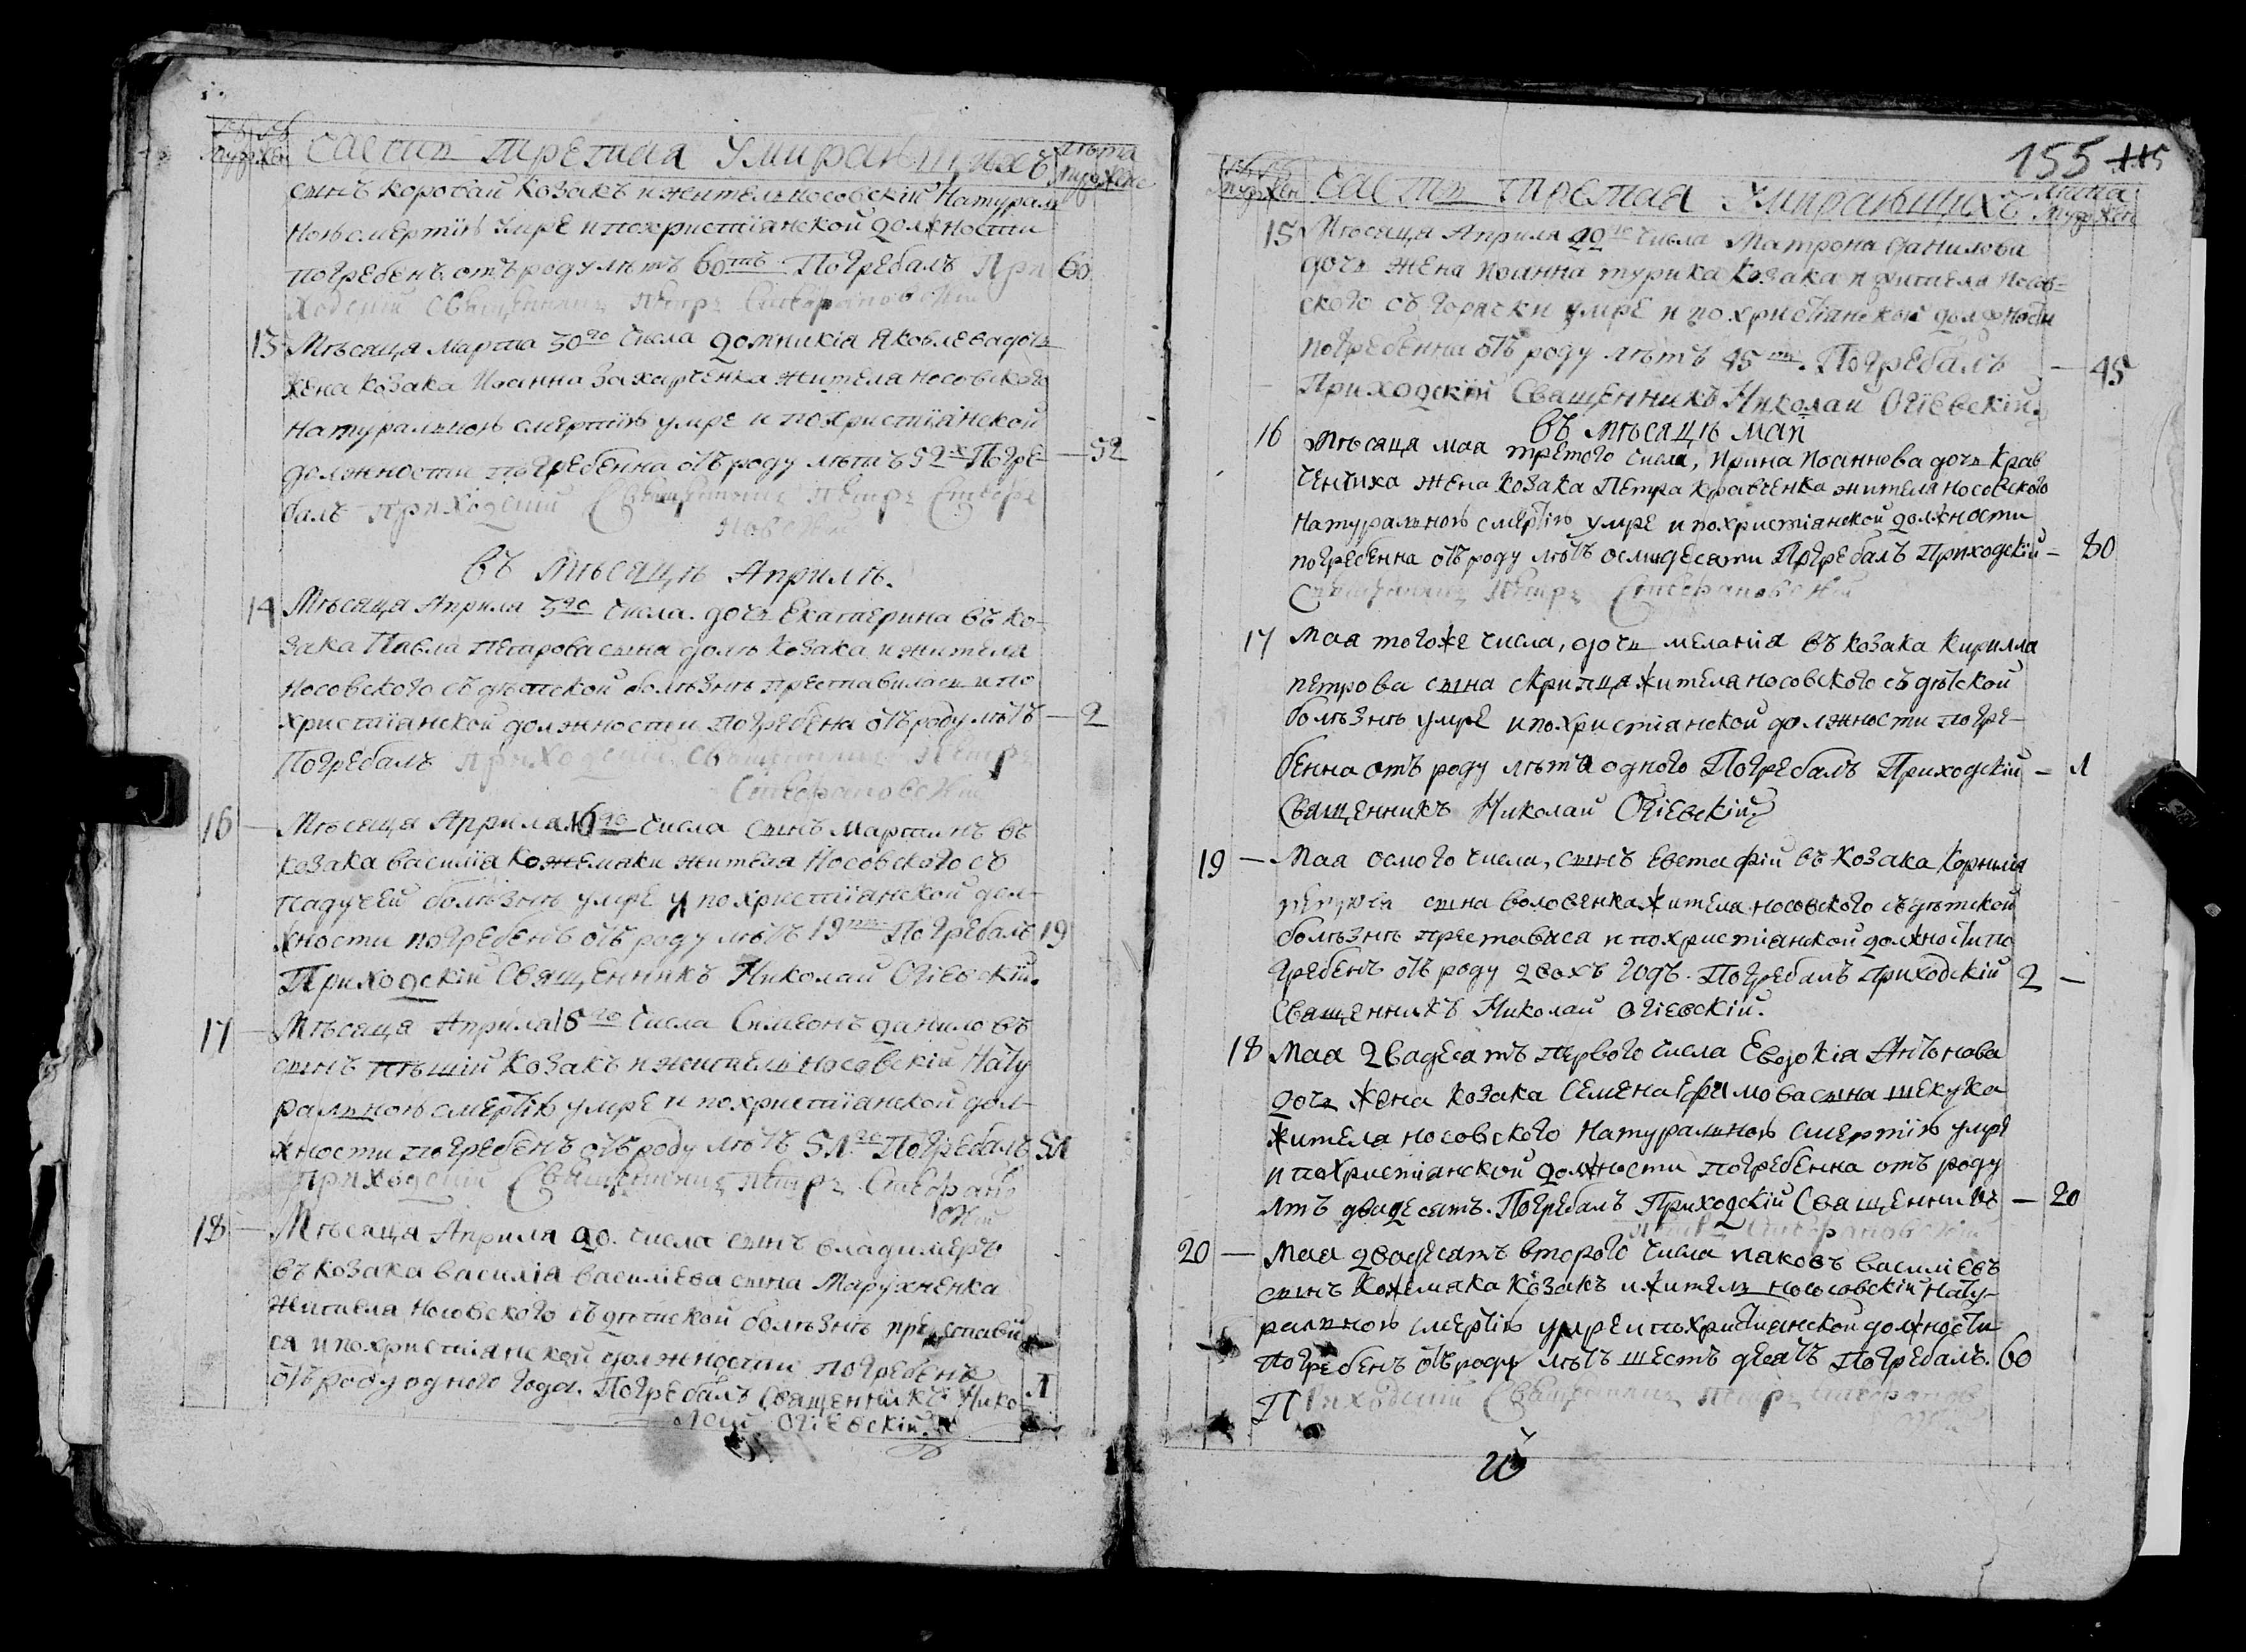 Часть третая Умираньщихъ лѣта
Муж Жен Муж Жено
сынъ коробай козакъ и житель носовскій Натурал
ною смертію умре и похристіянской должности
погребенъ отъ роду лѣтъ 60тъ. Погребалъ При 60
ходскій Священникъ Петръ Стефановскій
13 Мѣсяца марта 30го числа домникія Яковлева дочь
жена козака Иоанна Захарченка жителя носовского
натуралною смертію умре и похристіянской
должности погребенна отъ роду лѣтъ 52х Погре- — 52
балъ Приходскій Священникъ Петръ Стефа
новскій
Въ Мѣсяцѣ Априлѣ.
14 Мѣсяца Априля 3го числа. дочь Екатерина въ ко-
зака Павла Петрова сына козака и жителя
Носовского съ дѣтской болѣзнѣ преставилась и по
христіанской должности погребена отъ роду лѣтъ — 2
Погребалъ Приходскій Священникъ Петръ
Стефановскій
16 — Мѣсяца Априля 16го числа сынъ Мартинъ въ
козака василія Кожемяки жителя Носовского съ
падучей болѣзнѣ умре и по христіянской дол-
жности погребенъ отъ роду лѣтъ 19ти Погребалъ 19
Приходскій Священникъ Николай Огіевскій.
17 — Мѣсяца Априля 18го числа Симеонъ даниловъ
сынъ козакъ и житель носовскій Нату
ральною смертію умре и похристіянской дол-
жности погребенъ отъ роду лѣтъ 51го Погребалъ 51
Приходскій Священникъ Петръ Стефанов
скій
18 — Мѣсяца Априля 20. числа сынъ владимеръ
въ козака василія василіева сына Марухненка
жителя Носовского съ дѣтской болѣзнѣ преставил
ся и похристіянской должности погребенъ
отъ роду одного года. Погребалъ Священникъ Нико 1
лай Огіевскій
155 115
Часть третая Умираньщихъ Лѣта
Муж Жен Муж Жен
15 Мѣсяца Априля 20го числа Матрона данилова
дочь жена Иоанна турика козака и жителя Носов-
ского съ горячки умре и по христіанской должности
погребенна отъ роду лѣтъ 45ти. Погребалъ — 45
Приходскій Священникъ Николай Огіевскій.
Въ мѣсяцѣ маи
16 Мѣсяца мая третого числа, Ирина Иоаннова дочь Крав
ченчиха жена козака Петра кравченка жителя носовского
натуральною смертію умре и похристіянской должности
погребенна отъ роду лѣтъ осмидесяти Погребалъ Приходскій — 80
Священникъ Петръ Стефановскій
17 Мая того же числа, дочь меланія въ козака Кирилла
петрова сына скрипця жителя носовского съ дѣтской
болѣзнѣ умре и похристіянской должности погре-
бенна отъ роду лѣта одного Погребалъ Приходскій — 1
Священникъ Николай Огіевскій
19 — Мая осмого числа, сынъ Евстафій въ козака Корнилія
сына воловенка жителя носовского съ дѣтской
болѣзнѣ преставися и похристіянской должности по
гребенъ отъ роду двохъ годъ. Погребалъ Приходскій 2 —
Священникъ Николай Огіевскій.
18 Мая двадесятъ первого числа Евдокія Антонова
дочь жена козака Семена Ефимова сына шекука
жителя носовского натуральною смертію умре
и похристіянской должности погребенна отъ роду
лѣтъ двадесятъ. Погребалъ Приходскій Священникъ — 20
Петръ Стефановскій
20 — Мая двадесятъ второго числа иаковъ василіевъ
сынъ Кожемяка козакъ и житель носовскій Нату-
ралною смертію умре и похристіянской должности
погребенъ отъ роду лѣтъ шестъ десятъ Погребалъ. 60
Приходскій Священникъ Петръ Стефанов
скій